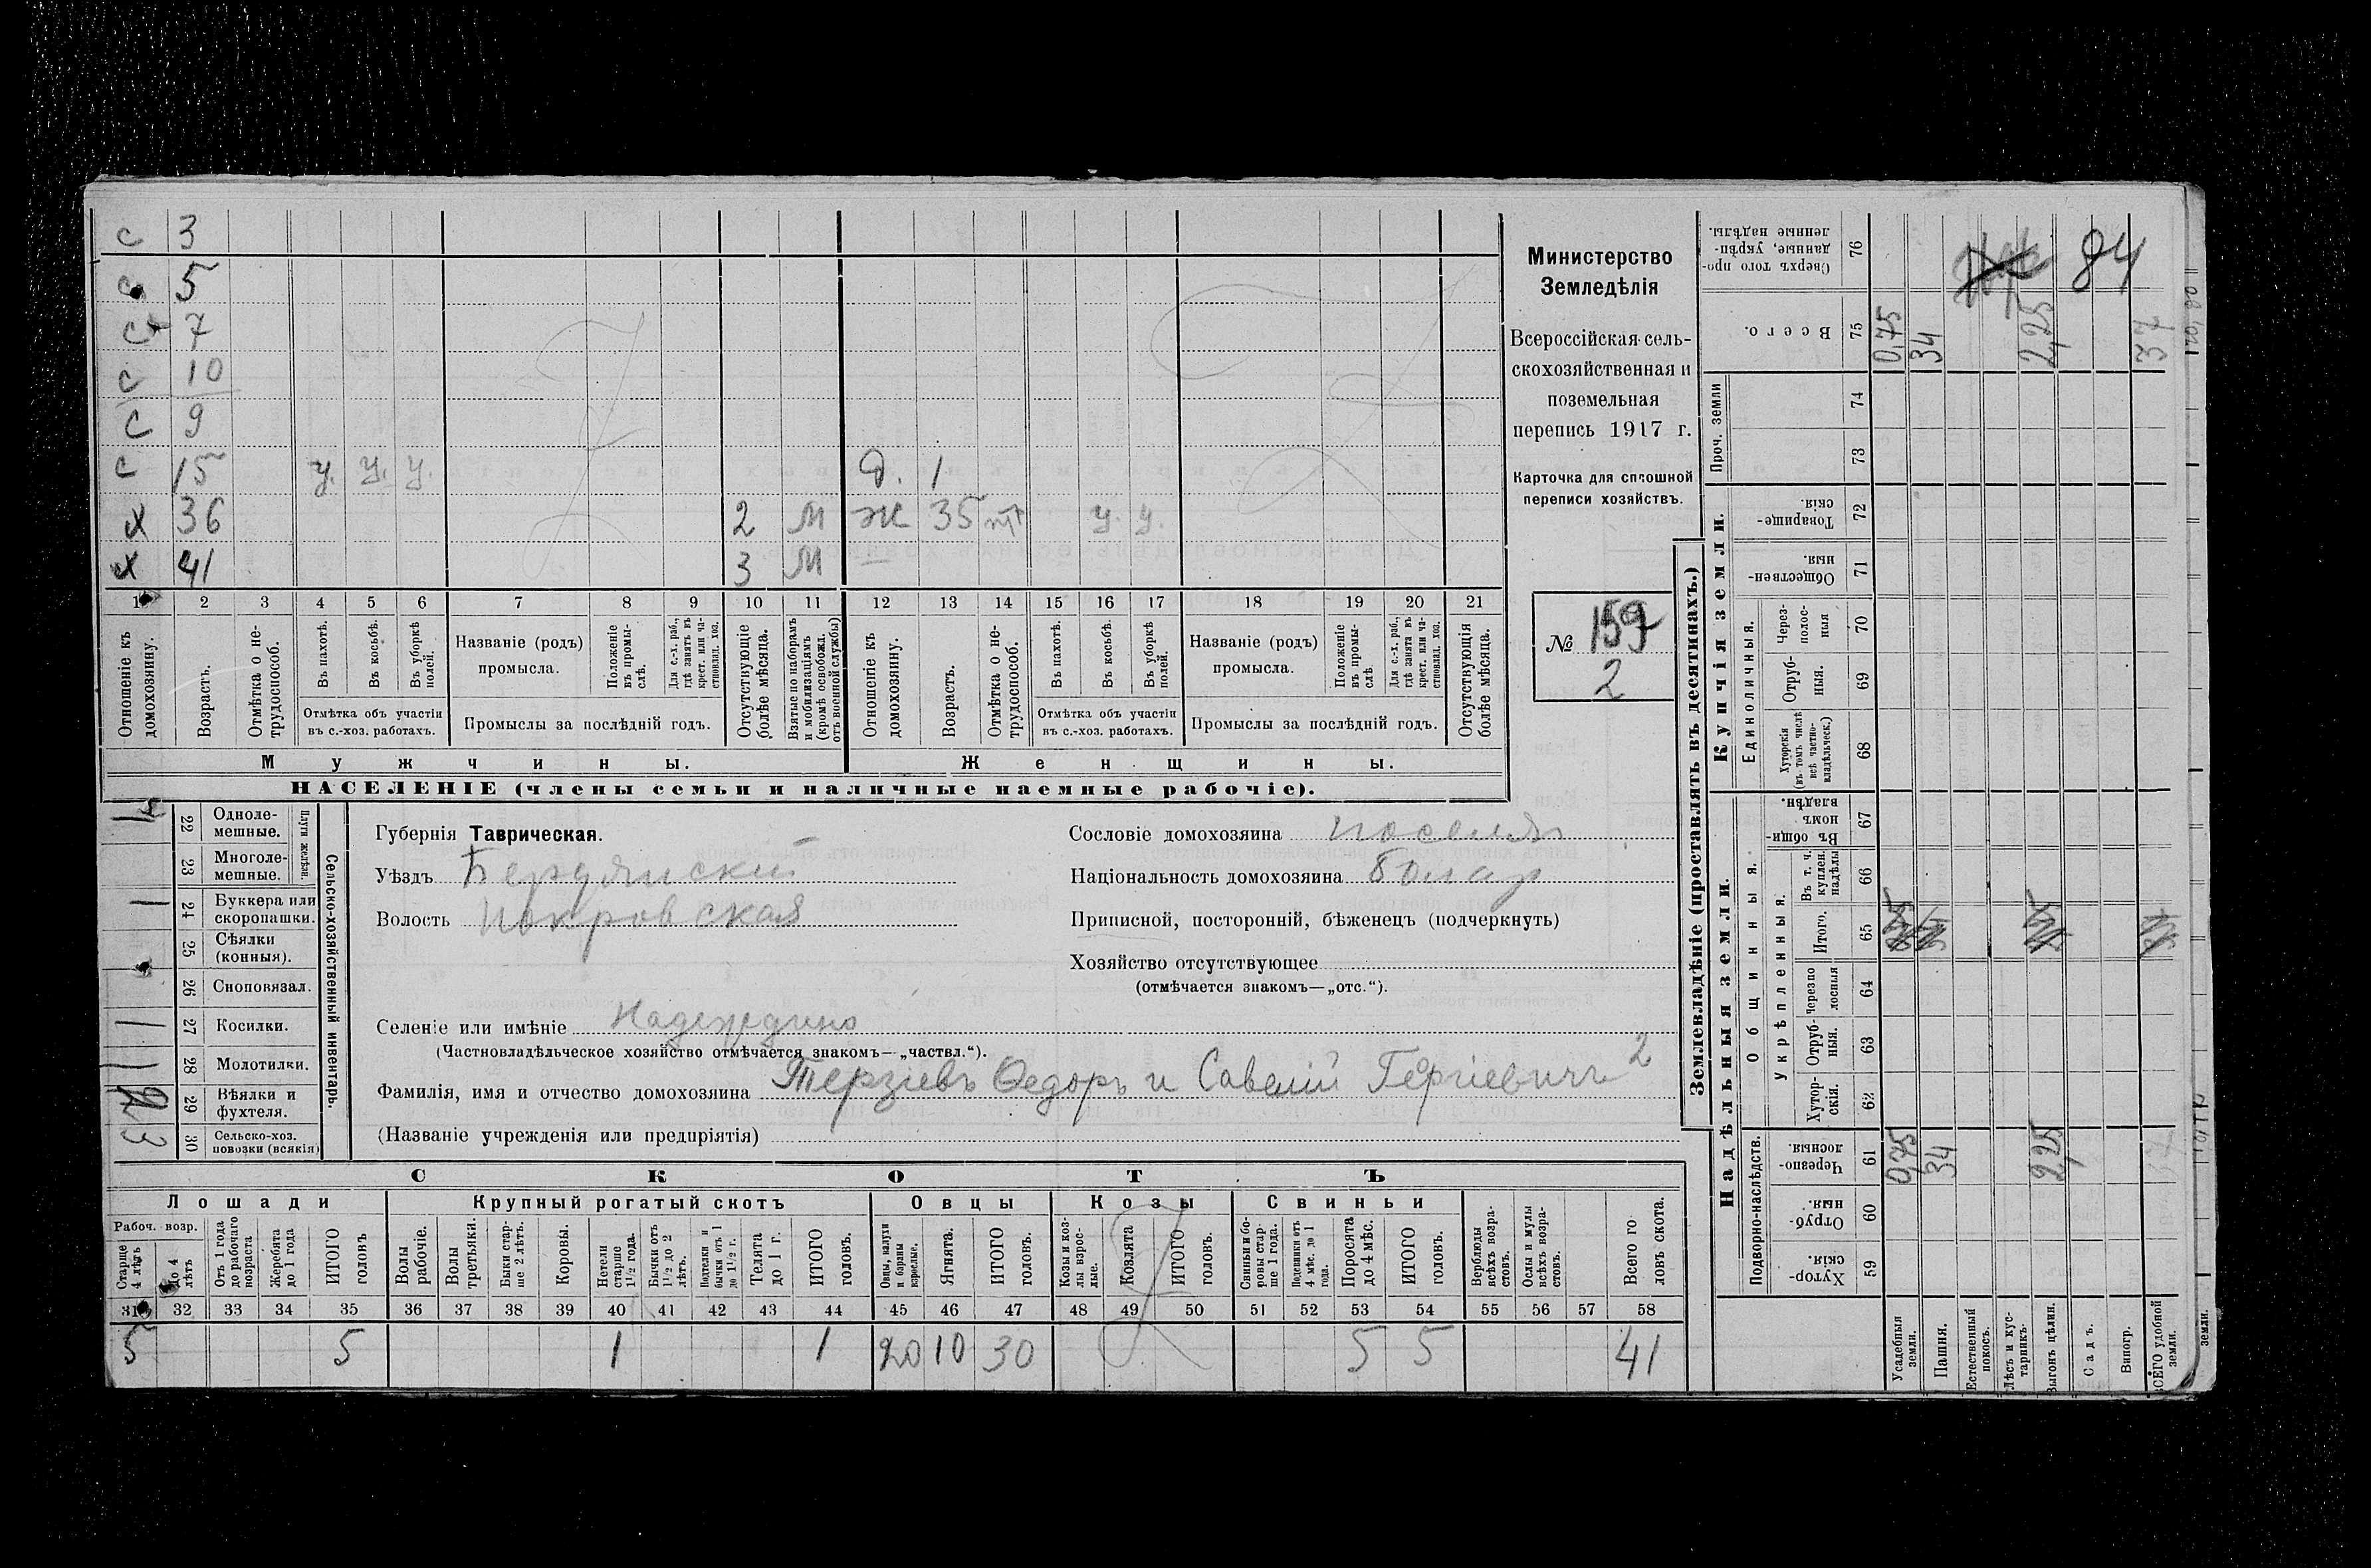 с 3
с 5
с 7
с 10
с 9
с 15 у. у. у. д. 1
х 36 2 М ж 35 у. у.
х 41 3 М
1 2 3 4 5 6 7 8 9 10 11 12 13 14 15 16 17 18 19 20 21
Отношеніе къ домохозяину.
Возрастъ.
Отмѣтка о не-трудоспособ.
Въ пахотѣ.
Въ косьбѣ.
Въ уборкѣ полей.
Отмѣтка объ участіи
въ с.-хоз. работахъ.
Названіе (родъ)
промысла.
Положеніе въ промы-слѣ.
Для с.-х. раб., гдѣ занятъ въ крест. или ча-стновлад. хоз.
Промыслы за послѣдній годъ.
Отсутствующіе болѣе мѣсяца.
Взятые по наборамъ и мобилизаціямъ (кромѣ освобожд. отъ военной службы)
Отношеніе къ домохозяину.
Возрастъ.
Отмѣтка о не-трудоспособ.
Въ пахотѣ.
Въ косьбѣ.
Въ уборкѣ полей.
Отмѣтка объ участіи
въ с.-хоз. работахъ.
Названіе (родъ)
промысла.
Положеніе въ промы-слѣ.
Для с.-х. раб., гдѣ занята въ крест. или ча-стновлад. хоз.
Промыслы за послѣдній годъ.
Отсутствующія болѣе мѣсяца.
Мужчины.
Женщины.
НАСЕЛЕНІЕ (члены семьи и наличные наемные рабочіе).
Министерство
Земледѣлія
Всероссійская сель-
скохозяйственная и
поземельная
перепись 1917 г.
Карточка для сплошной
переписи хозяйствъ.
№ 159
2
22 Одноле-мешные.
23 Многоле-мешные.
Плуги желѣзн.
24 Буккера или скоропашки.
25 Сѣялки (конныя).
26 Сноповязал.
27 Косилки.
28 Молотилки.
29 Вѣялки и фухтеля.
30 Сельско-хоз. повозки (всякія)
3
Сельско-хозяйственный инвентарь.
Губернія Таврическая.
Уѣздъ Бердянский
Волость Покровская
Сословіе домохозяина поселян
Національность домохозяина болгар
Приписной, посторонній, бѣженецъ (подчеркнуть)
Хозяйство отсутствующее
(отмѣчается знакомъ—„отс.“).
Селеніе или имѣніе Надеждино
(Частновладѣльческое хозяйство отмѣчается знакомъ—„частвл.“).
Фамилія, имя и отчество домохозяина Терзіевъ Ѳедоръ и Савелій Гергіевичи 2
(Названіе учрежденія или предпріятія)
СКОТЪ
Лошади
Крупный рогатый скотъ
Овцы
Козы
Свиньи
Рабоч. возр.
Старше 4 лѣтъ
До 4 лѣтъ
Отъ 1 года до рабочаго возраста
Жеребята до 1 года
ИТОГО головъ
Волы рабочіе.
Волы третьяки.
Быки стар-ше 2 лѣтъ.
Коровы.
Нетели старше 1½ года.
Бычки отъ 1½ до 2 лѣтъ.
Подтелки и бычки отъ 1 до 1½ г.
Телята до 1 г.
ИТОГО головъ.
Овцы, валухи и бараны взрослые.
Ягнята.
ИТОГО головъ.
Козы и коз-лы взрос-лые.
Козлята
ИТОГО головъ.
Свиньи и бо-ровы стар-ше 1 года.
Подсвинки отъ 4 мѣс. до 1 года.
Поросята до 4 мѣс.
ИТОГО головъ.
Верблюды всѣхъ возра-стовъ.
Ослы и мулы всѣхъ возра-стовъ.
Всего го ловъ скота.
31 32 33 34 35 36 37 38 39 40 41 42 43 44 45 46 47 48 49 50 51 52 53 54 55 56 57 58
5 5 1 1 20 10 30 5 5 41
Землевладѣніе (проставлять въ десятинахъ.)
Надѣльныя земли.
Купчія земли.
Проч. земли
Общинныя.
Укрѣпленныя.
Подворно-наслѣдств.
Единоличныя.
Сверхъ того про-данные, укрѣп-ленные надѣлы. 76
Всего. 75 0,75 34 2,25 37
84
74
73
Товарище-скія. 72
Обществен-ныя. 71
Через-полос-ныя 70
Отруб-ныя. 69
Хуторскія (въ томъ числѣ всѣ частно-владѣльческ.) 68
Въ общин-номъ владѣн. 67
Въ т. ч. куплен. надѣлы 66
Итого. 65
Черезпо лосныя 64
Отруб-ныя. 63
Хутор-скія. 62
Черезпо-лосныя 61 0,75 34 2,25
Отруб-ныя. 60
Хутор-скія. 59
Усадебныя земли.
Пашня.
Естественный покосъ.
Лѣсъ и кус-тарникъ.
Выгонъ цѣлин.
Садъ.
Виногр.
ВСЕГО удобной земли.
земли.